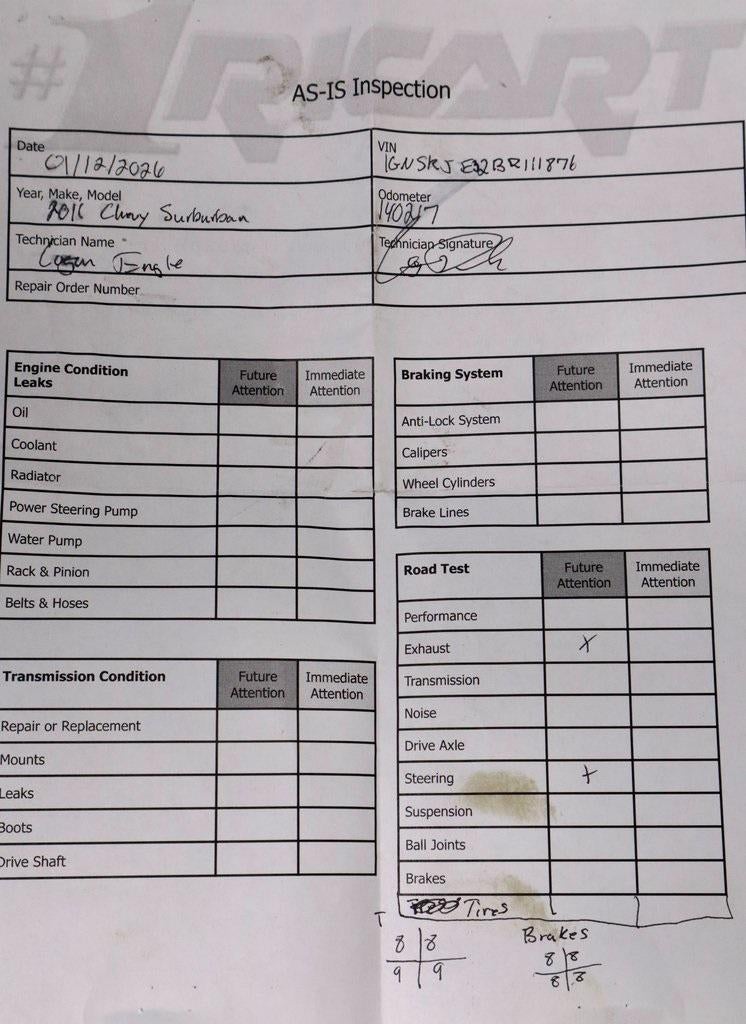 #1 RICART
AS-IS Inspection
Date
01/12/2026
VIN
1GNSKJE
BR111876
Year, Make, Model
2011 Chevy Surburban
Odometer
140217
Technician Name
Logan Engle
Technician Signature
Repair Order Number
Engine Condition Leaks Future Attention Immediate Attention
Oil
Coolant /
Radiator
Power Steering Pump
Water Pump
Rack & Pinion
Belts & Hoses
Transmission Condition Future Attention Immediate Attention
Repair or Replacement
Mounts
Leaks
Boots
Drive Shaft
Braking System Future Attention Immediate Attention
Anti-Lock System
Calipers
Wheel Cylinders
Brake Lines
Road Test Future Attention Immediate Attention
Performance
Exhaust X
Transmission
Noise
Drive Axle
Steering X
Suspension
Ball Joints
Brakes
Tires
T
8 8
9 9
Brakes
8 8
8 8